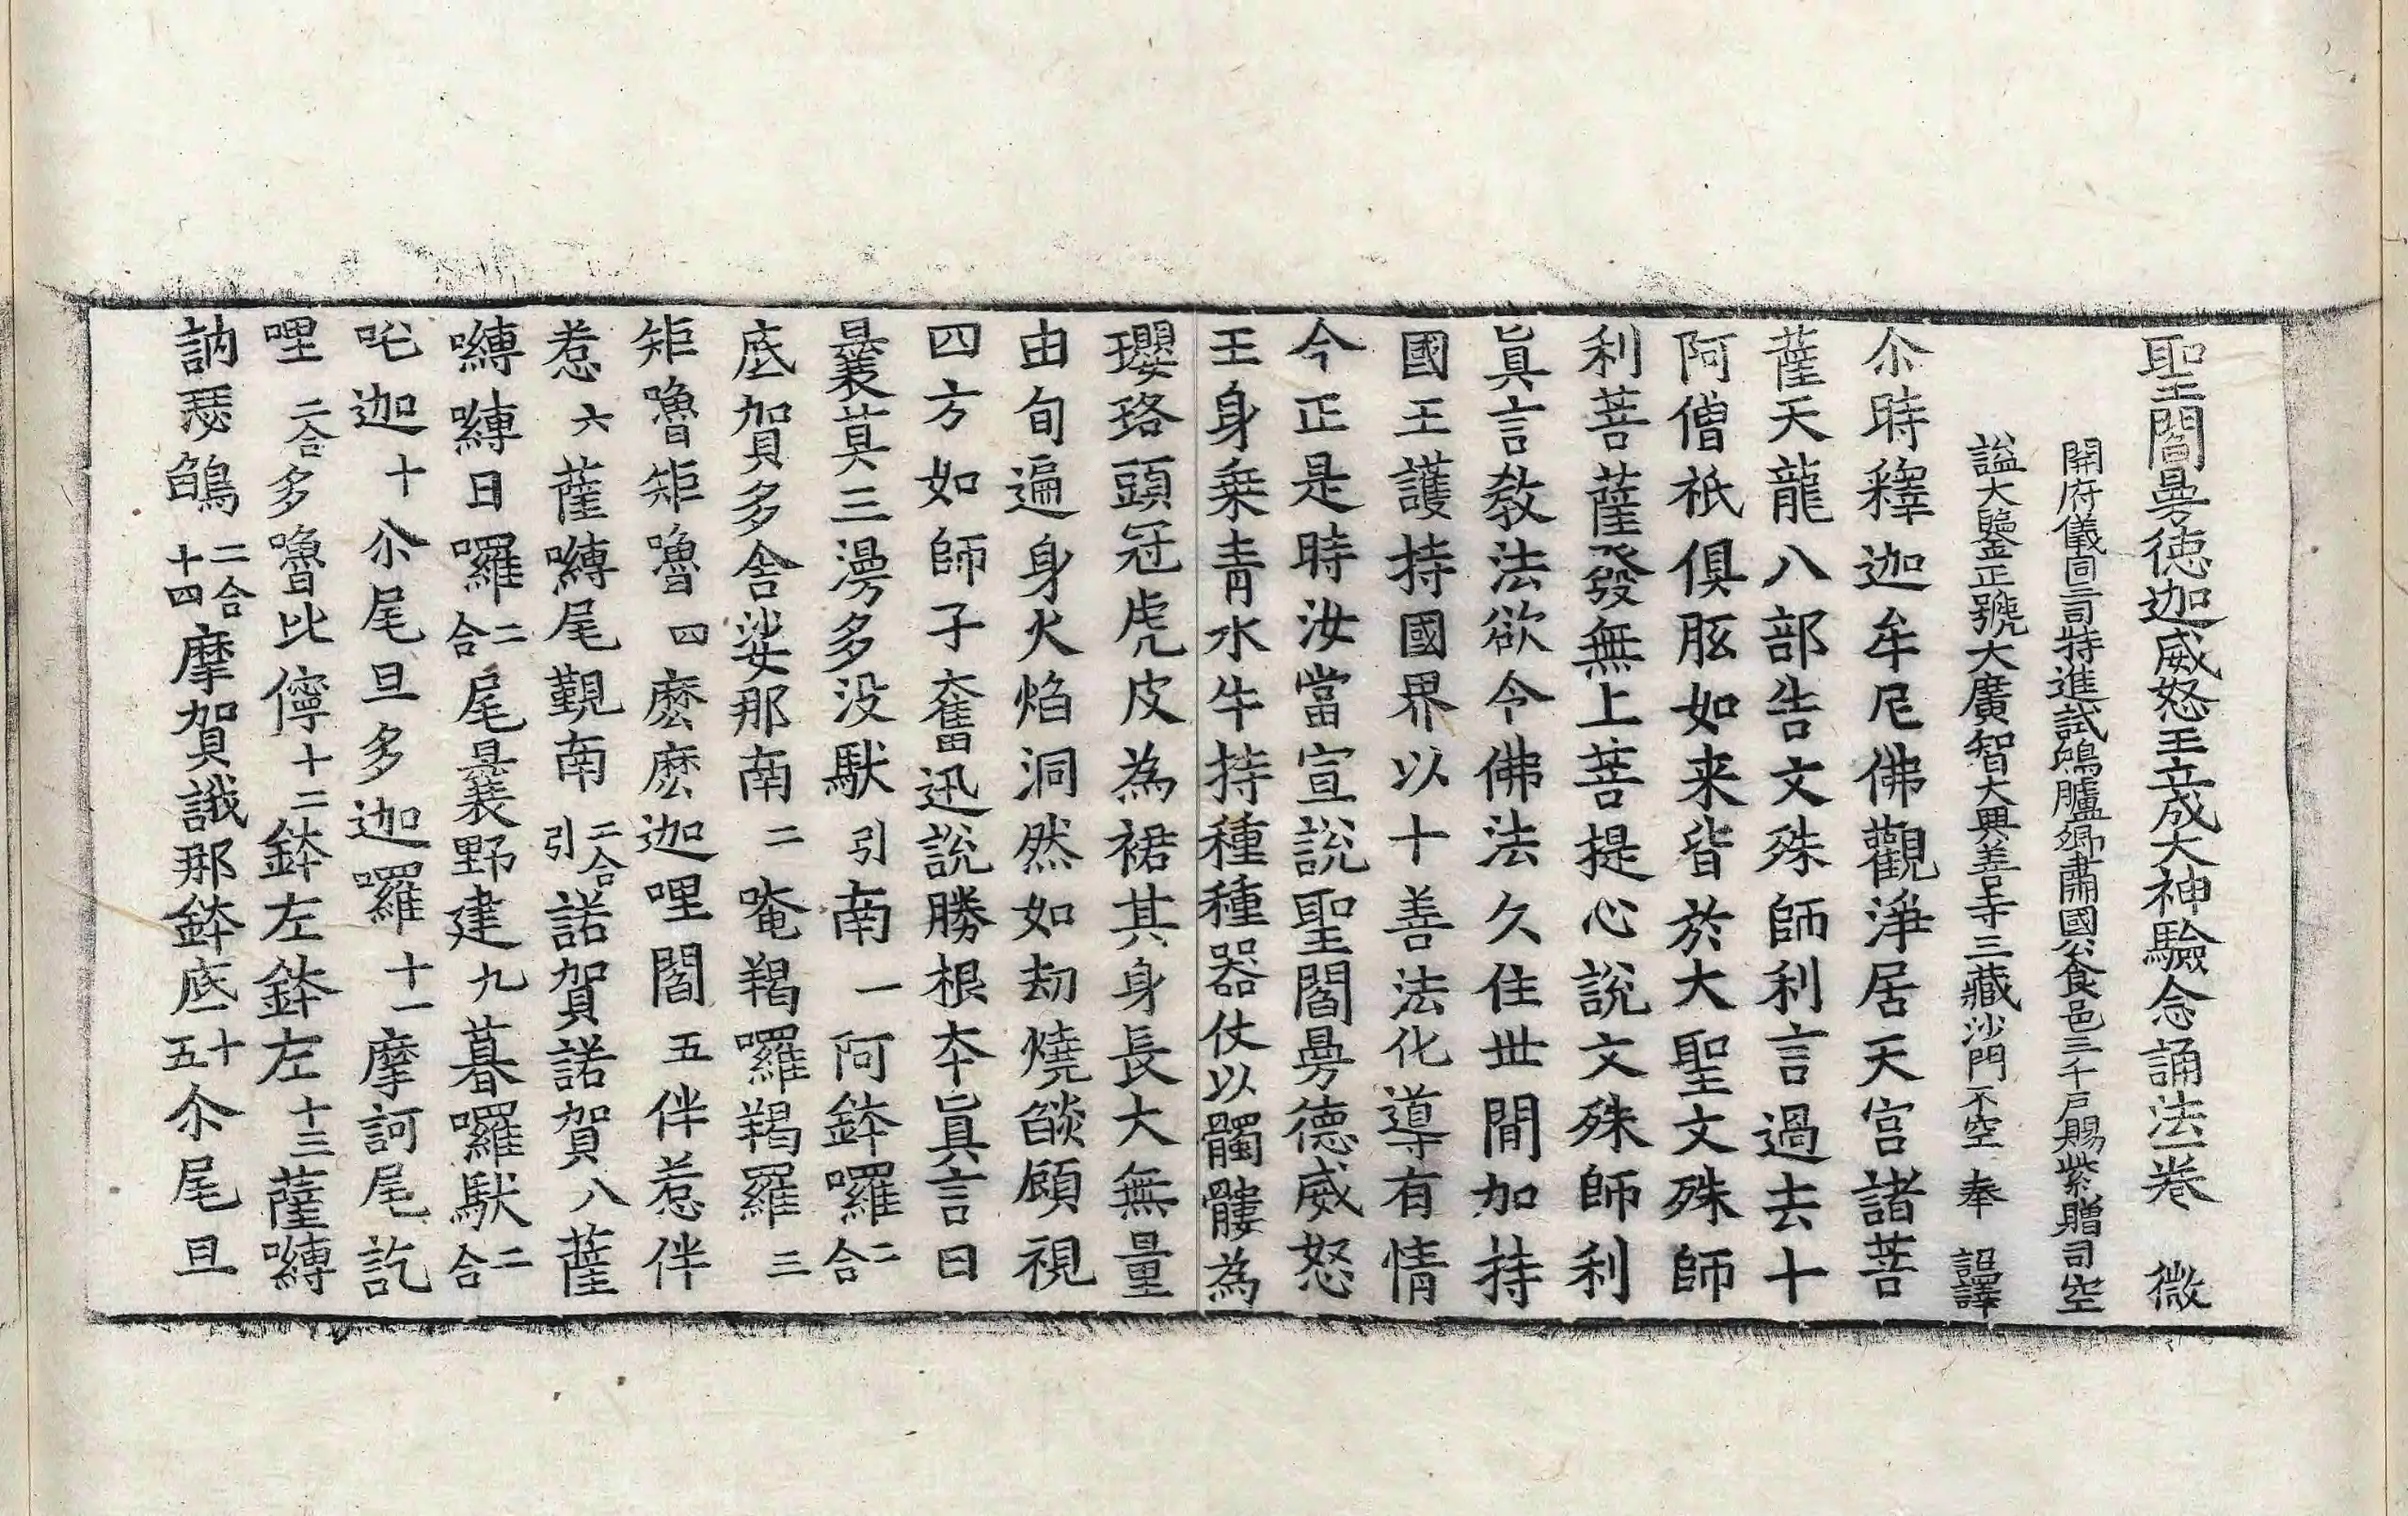 聖閻曼徳迦威怒王立成大神驗念誦法一卷 微
開府儀同三司特進試鴻臚卿肅國公食邑三千戸賜紫贈司空
謚大鑒正號大廣智大興善寺三藏沙門不空 奉 詔譯
尒時釋迦牟尼佛觀淨居天宮諸菩
薩天龍八部告文殊師利言過去十
阿僧祇俱胝如来皆於大聖文殊師
利菩薩發無上菩提心說文殊師利
眞言教法欲令佛法久住世間加持
國王護持國界以十善法化導有情
今正是時汝當宣說聖閻曼德威怒
王身乗青水牛持種種器仗以髑髏為
瓔珞頭冠虎皮為裙其身長大無量
由旬遍身火焰洞然如劫燒燄顧視
四方如師子奮迅說勝根本眞言曰
曩莫三漫多没馱引南一阿鉢囉二合
底賀多舍娑那南二唵羯囉羯囉三
矩嚕矩嚕四麽麽迦哩閻五伴惹伴
惹六薩嚩尾覲南二合引諾賀諾賀八薩
嚩嚩日囉二合尾曩野建九暮囉馱二合
吒迦十尒尾旦多迦囉十一摩訶尾訖
哩二合多嚕比儜十二鉢左鉢左十三薩嚩
訥瑟鵮二合十四摩賀誐那鉢底十五尒尾旦